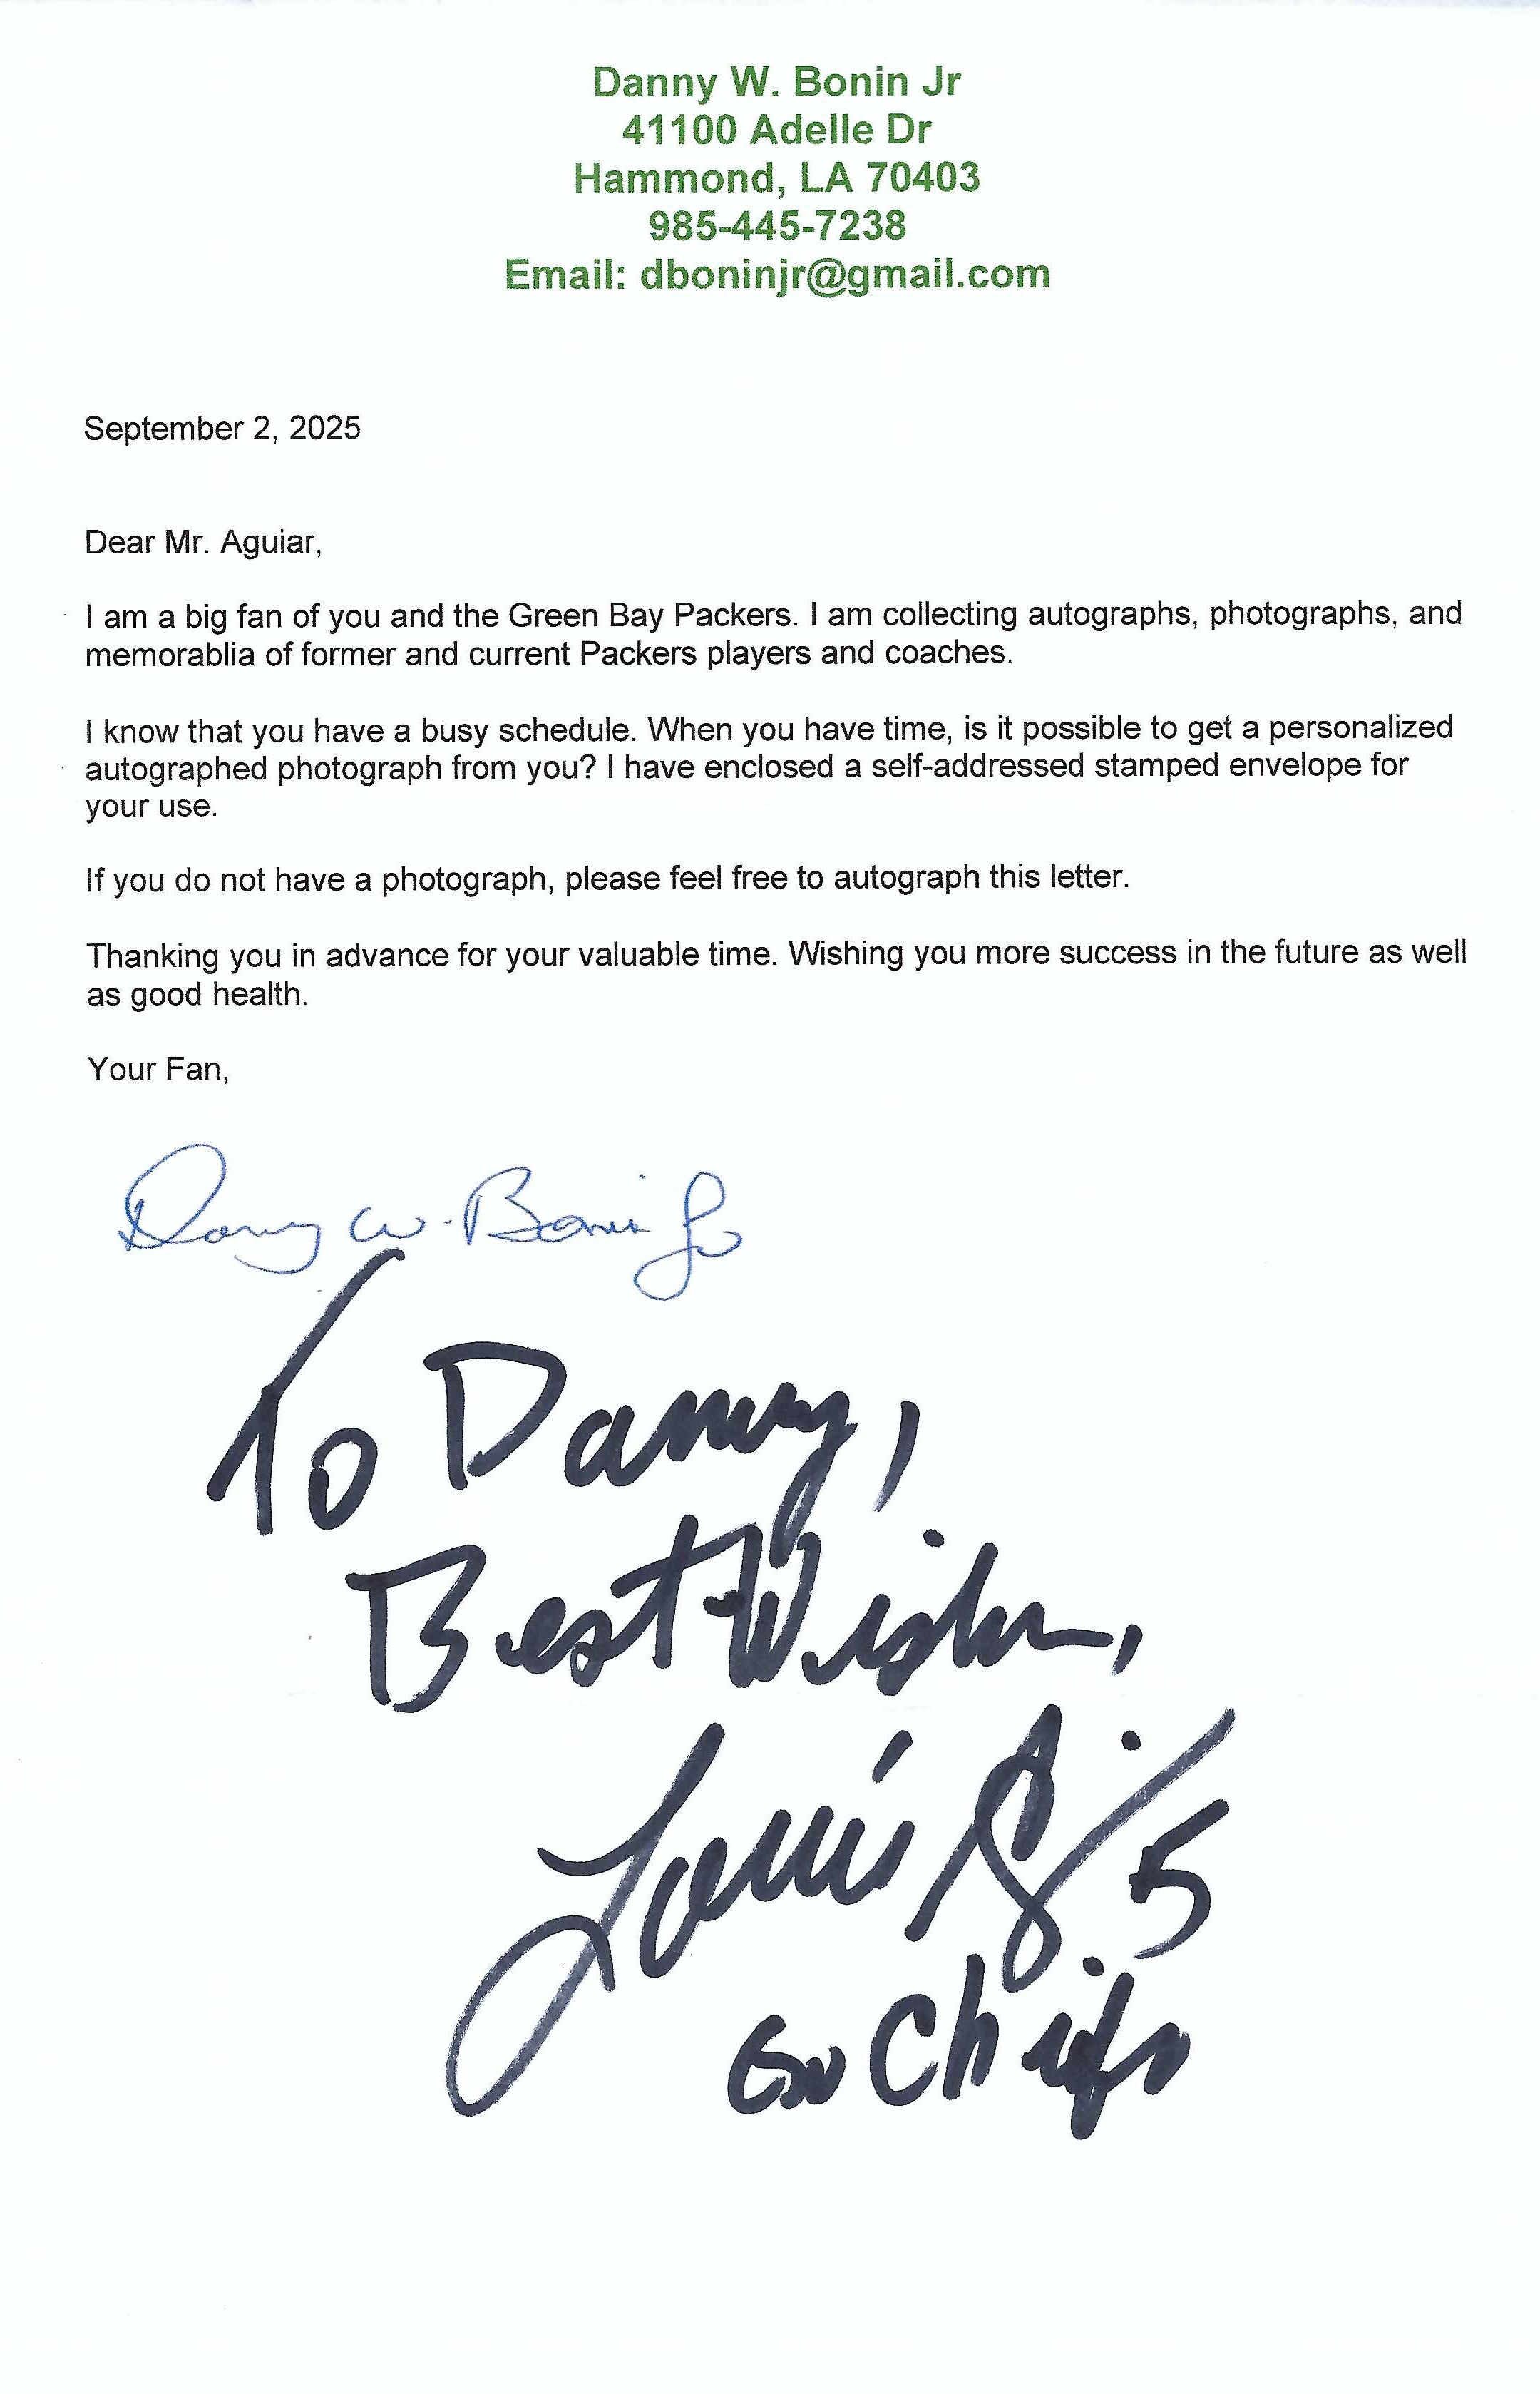 Danny W. Bonin Jr
41100 Adelle Dr
Hammond, LA 70403
985-445-7238
Email: dboninjr@gmail.com
September 2, 2025
Dear Mr. Aguiar,
I am a big fan of you and the Green Bay Packers. I am collecting autographs, photographs, and
memorablia of former and current Packers players and coaches.
I know that you have a busy schedule. When you have time, is it possible to get a personalized
autographed photograph from you? I have enclosed a self-addressed stamped envelope for
your use.
If you do not have a photograph, please feel free to autograph this letter.
Thanking you in advance for your valuable time. Wishing you more success in the future as well
as good health.
Your Fan,
Danny W. Bonin Jr
To Danny,
Best Wishes,
Louie 5
Go Chiefs